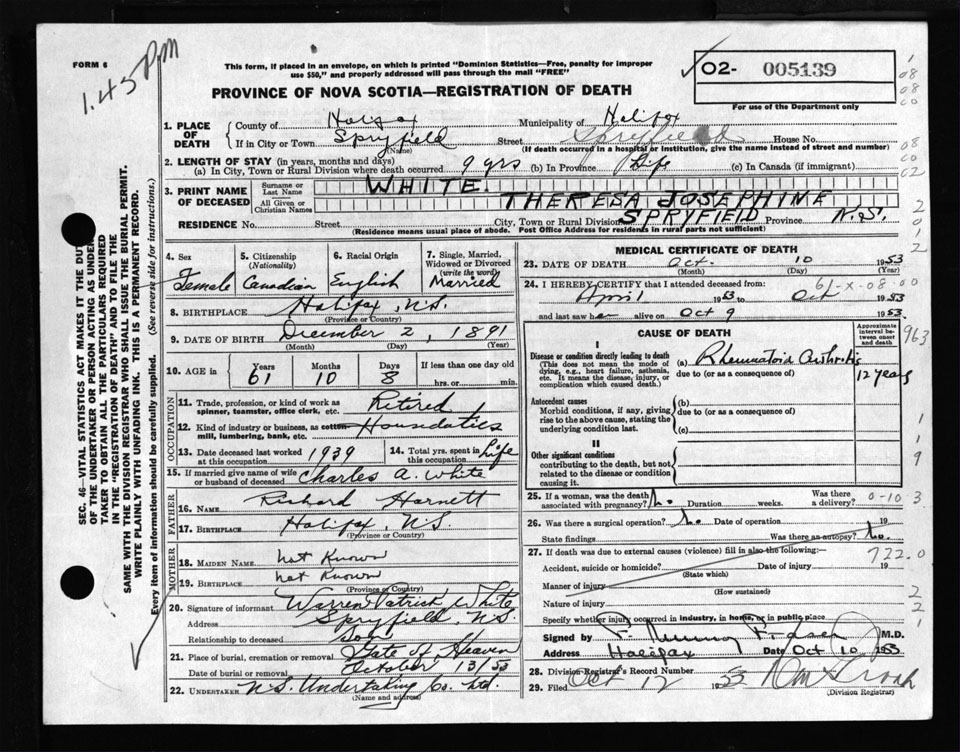 1.45 PM
FORM 6
This form, if placed in an envelope, on which is printed "Dominion Statistics—Free, penalty for improper
use $50," and properly addressed will pass through the mail "FREE"
PROVINCE OF NOVA SCOTIA—REGISTRATION OF DEATH
02- 005139
For use of the Department only
SEC. 46—VITAL STATISTICS ACT MAKES IT THE DUT
OF THE UNDERTAKER OR PERSON ACTING AS UNDER
TAKER TO OBTAIN ALL THE PARTICULARS REQUIRED
IN THE "REGISTRATION OF DEATH" AND TO FILE THE
SAME WITH THE DIVISION REGISTRAR WHO SHALL ISSUE THE BURIAL PERMIT.
WRITE PLAINLY WITH UNFADING INK. THIS IS A PERMANENT RECORD.
Every item of information should be carefully supplied. (See reverse side for instructions.)
1. PLACE OF DEATH { County of Halifax Municipality of Halifax
If in City or Town Spryfield Street Spryfield House No.
(Name) (If death occurred in a hospital or institution, give the name instead of street and number)
2. LENGTH OF STAY (in years, months and days)
(a) In City, Town or Rural Division where death occurred 9 yrs (b) In Province Life (c) In Canada (if immigrant)
3. PRINT NAME OF DECEASED { Surname or Last Name WHITE.
All Given or Christian Names THERESA JOSEPHINE
RESIDENCE No. Street City, Town or Rural Division SPRYFIELD Province N.S.
(Residence means usual place of abode. Post Office Address for residents in rural parts not sufficient)
4. Sex Female
5. Citizenship (Nationality) Canadian
6. Racial Origin English
7. Single, Married, Widowed or Divorced (write the word) Married
8. BIRTHPLACE Halifax, N.S.
(Province or Country)
9. DATE OF BIRTH December 2, 1891
(Month) (Day) (Year)
10. AGE in Years 61 Months 10 Days 8 If less than one day old
hrs. or min.
OCCUPATION
11. Trade, profession, or kind of work as
spinner, teamster, office clerk, etc. Retired
12. Kind of industry or business, as cotton
mill, lumbering, bank, etc.
13. Date deceased last worked at this occupation 1939
14. Total yrs. spent in this occupation Life
15. If married give name of wife or husband of deceased Charles A. White
FATHER
16. NAME Richard Harnett
17. BIRTHPLACE Halifax, N.S.
(Province or Country)
MOTHER
18. MAIDEN NAME not Known
19. BIRTHPLACE not Known
(Province or Country)
20. Signature of informant Warren Patrick White
Address Spryfield, N.S.
Relationship to deceased Son
21. Place of burial, cremation or removal Gate of Heaven
Date of burial or removal October 13/53
22. UNDERTAKER N.S. Undertaking Co. Ltd.
(Name and address)
MEDICAL CERTIFICATE OF DEATH
23. DATE OF DEATH Oct. 10 1953
(Month) (Day) (Year)
24. I HEREBY CERTIFY that I attended deceased from: 61-X-08-00
April 1953 to Oct 1953
and last saw her alive on Oct 9 1953
CAUSE OF DEATH
Approximate interval between onset and death
I
Disease or condition directly leading to death (a) Rheumatoid Arthritis
(This does not mean the mode of dying, e.g., heart failure, asthenia, etc. It means the disease, injury, or complication which caused death.)
due to (or as a consequence of) 12 years
Antecedent causes (b)
Morbid conditions, if any, giving rise to the above cause, stating the underlying condition last.
due to (or as a consequence of)
(c)
II
Other significant conditions
contributing to the death, but not related to the disease or condition causing it.
25. If a woman, was the death associated with pregnancy? No. Duration weeks. Was there a delivery? 0-10 3
26. Was there a surgical operation? No Date of operation 19
State findings Was there an autopsy? No.
27. If death was due to external causes (violence) fill in also the following:—
Accident, suicide or homicide? Date of injury 19
(State which)
722.0
Manner of injury
(How sustained)
Nature of injury
Specify whether injury occurred in industry, in home, or in public place
Signed by M.D.
Address Halifax Date Oct 10 1953
28. Division Registrar's Record Number
29. Filed Oct 12 1953
(Division Registrar)
1
08
08
00
08
00
02
2
0
1
2
963
1
1
9
2
2
1